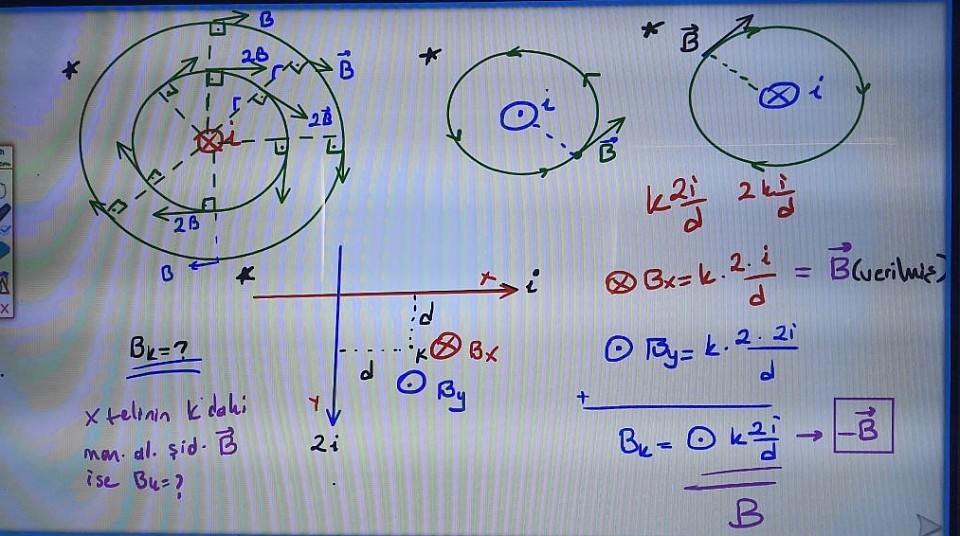 * B
2B r B⃗
r 2B⃗
i
2B
B
* i
B⃗
* B⃗ i
k 2i/d 2k i/d
* x i
d
K ⊗ Bx
d ⊙ By
y
2i
Bk=?
x telinin K'daki
man. al. şid. B⃗
ise Bk=?
⊗ Bx = k . 2 . i / d = B⃗ (verilmiş)
⊙ By = k . 2 . 2i / d
+
Bk = ⊙ k 2i/d → -B⃗
B